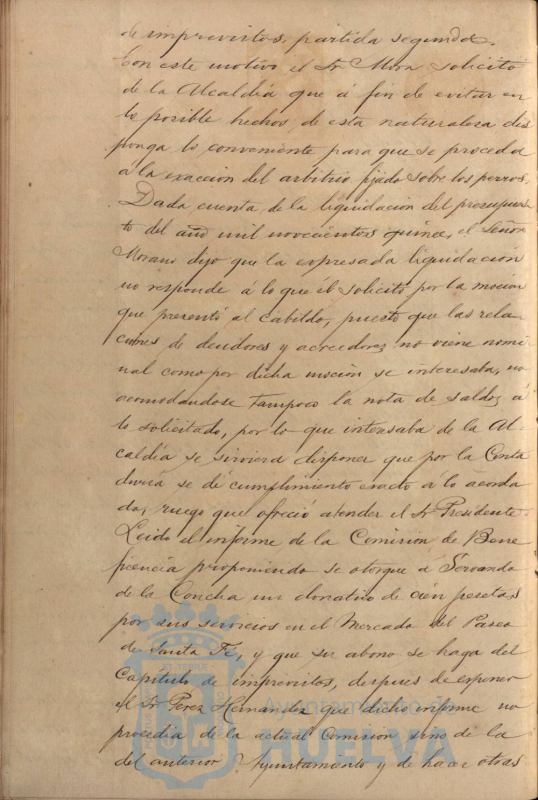 de imprevistos, partida segunda.
Con este motivo el Sr Mora solicitó
de la Alcaldía que á fin de evitar en
lo posible hechos de esta naturaleza dis
ponga lo conveniente para que se proceda
á la exaccion del arbitrio fijado sobre los perros.
Dada cuenta de la liquidacion del presupues
to del año mil novecientos quince, el Señor
Morano dijo que la expresada liquidacion
no responde á lo que él solicitó por la mocion
que presentó al Cabildo, puesto que las rela-
ciones de deudores y acreedores no viene nomi-
nal como por dicha mocion se interesaba, no
acomodandose tampoco la nota de saldos á
lo solicitado, por lo que interesaba de la Al-
caldía se sirviera disponer que por la Conta
duria se dé cumplimiento exacto a lo acorda
do, ruego que ofreció atender el Sr Presidente.
Leido el informe de la Comision de Bene
ficencia proponiendo se otorgue á Servando
de la Concha un donativo de cien pesetas
por sus servicios en el Mercado del Paseo
de Santa Fé, y que su abono se haga del
Capitulo de imprevistos, despues de exponer
el Sr Perez Hernandez que dicho informe no
procedia de la actual Comision sino de la
del anterior Ayuntamiento y de hacer otras
Ayuntamiento de
HUELVA